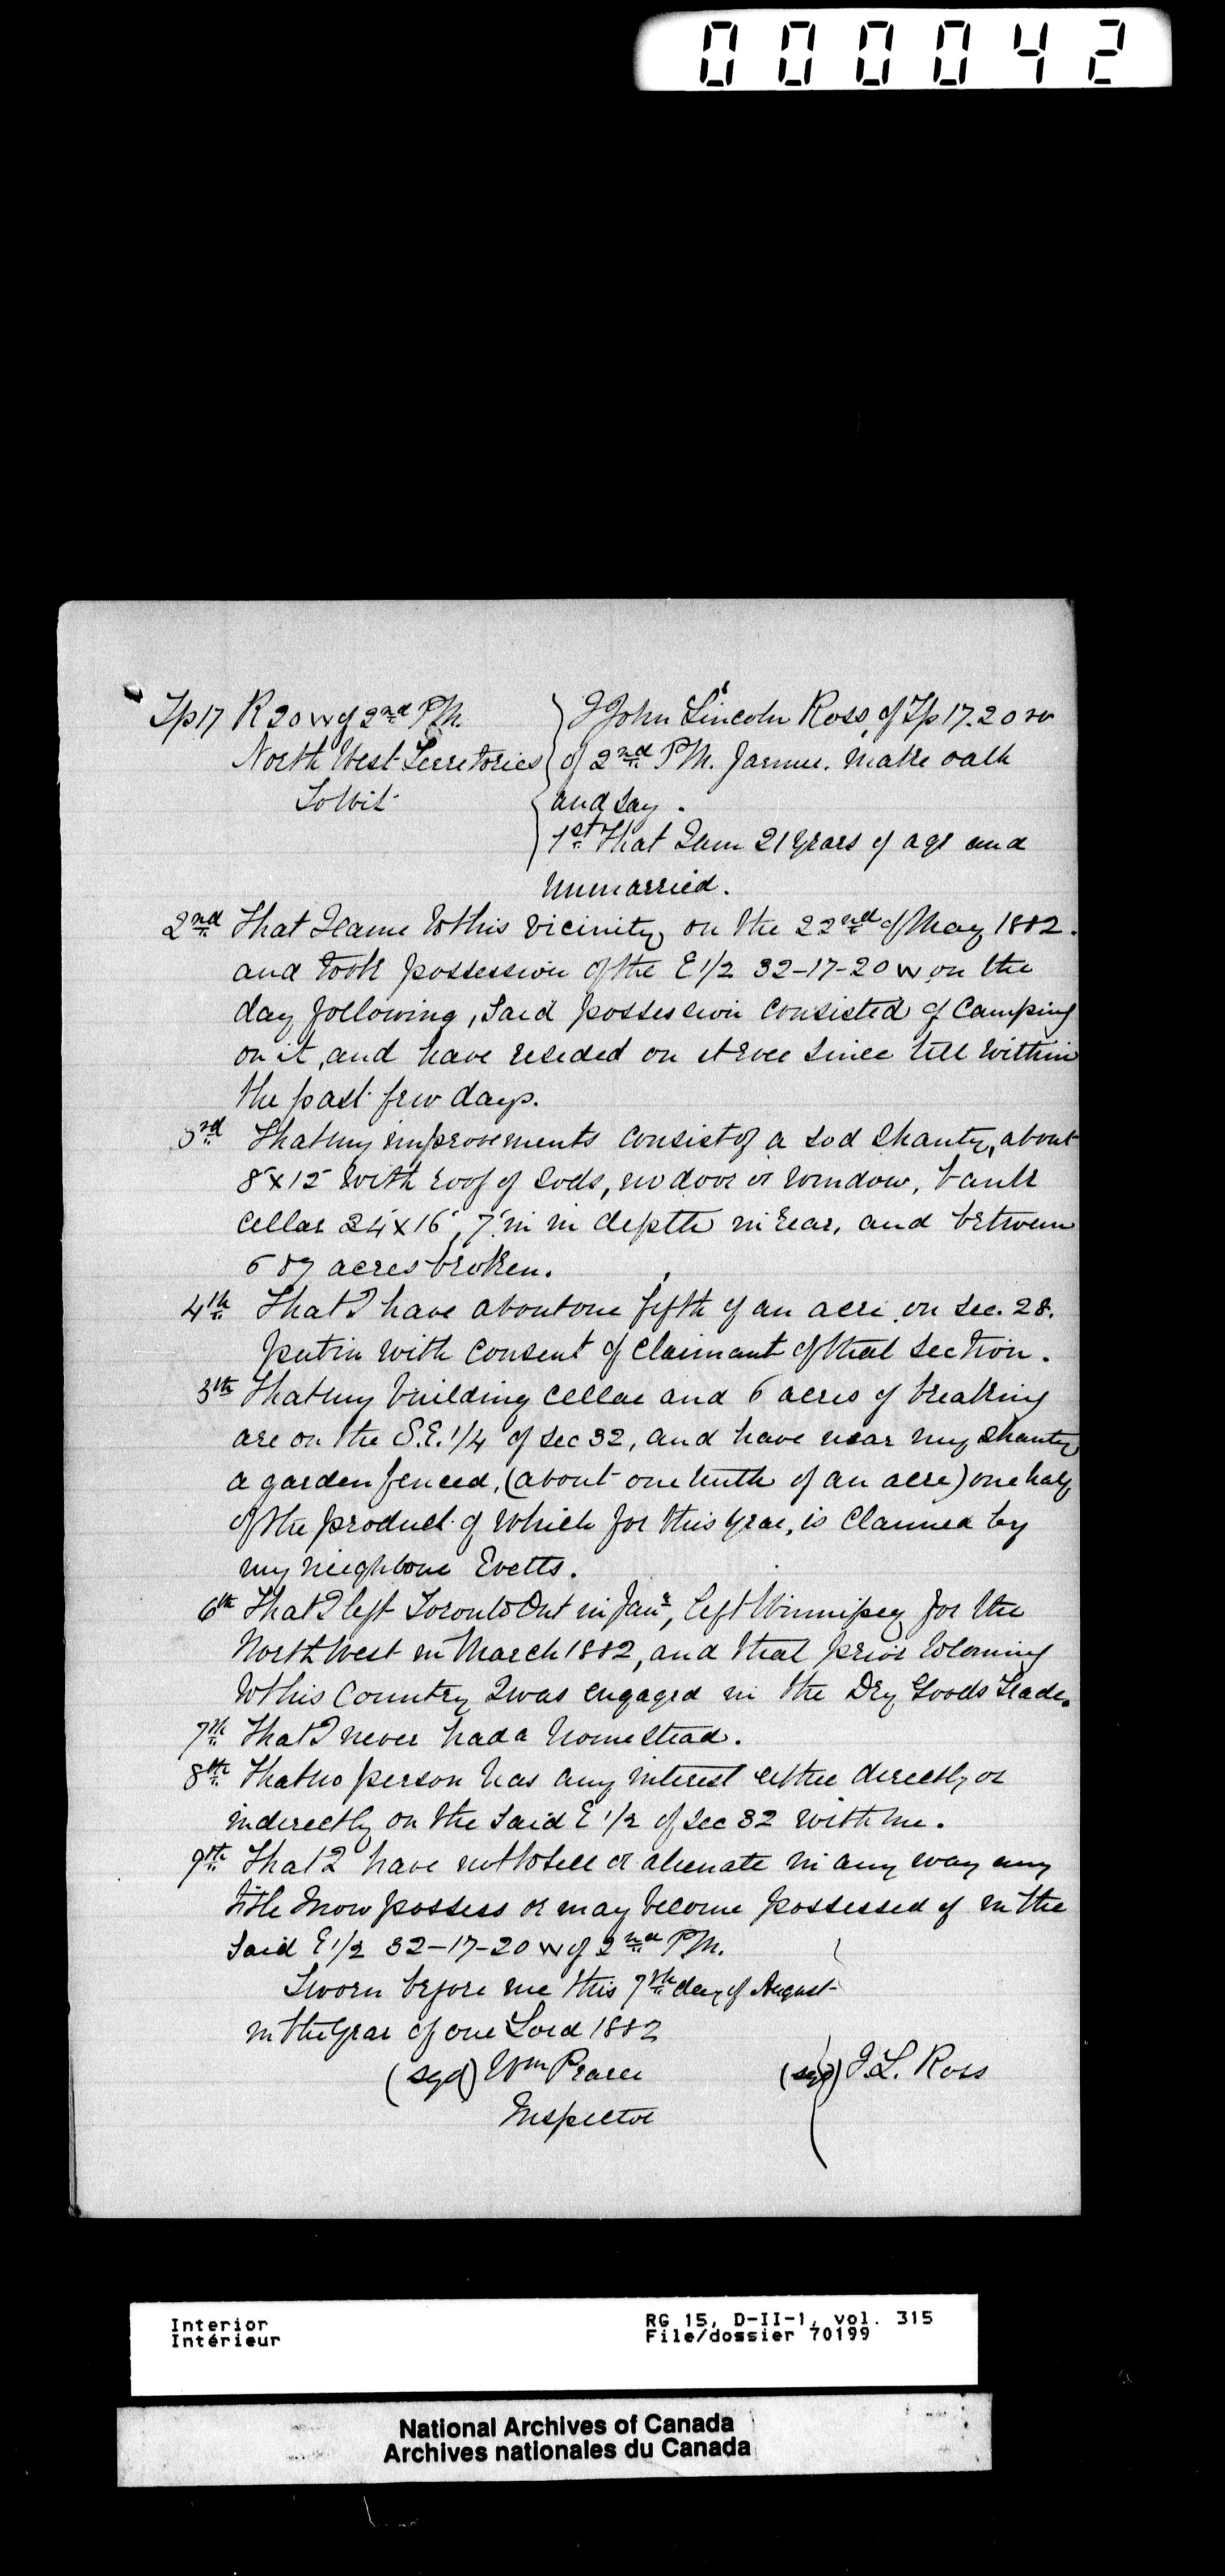 000042
Tp 17 R 20 W of 2nd P.M.
North West Territories
To Wit
I John Lincoln Ross, of Tp 17. 20 W
of 2nd P.M. farmer. make oath
and say.
1st That I am 21 years of age and
unmarried.
2nd That I came to this vicinity on the 22nd of May 1882.
and took possession of the E 1/2 32-17-20 W on the
day following, said possession consisted of camping
on it, and have resided on it ever since till within
the past few days.
3rd That my improvements consist of a sod shanty, about
8 x 12 with roof of sods, no door or window, bank
cellar 24 x 16, 7 in depth in rear, and between
6 & 7 acres broken.
4th That I have about one fifth of an acre on Sec. 28.
put in with consent of claimant of that section.
5th That my building cellar and 6 acres of breaking
are on the S.E. 1/4 of Sec 32, and have near my shanty
a garden fenced, (about one tenth of an acre) one half
of the product of which for this year, is claimed by
my neighbour Evetts.
6th That I left Toronto Ont in Jany, left Winnipeg for the
North West in March 1882, and that prior to coming
to this Country I was engaged in the Dry Goods Trade.
7th That I never had a homestead.
8th That no person has any interest either directly or
indirectly on the said E 1/2 of Sec 32 with me.
9th That I have not to sell or alienate in any way any
title I now possess or may become possessed of in the
said E 1/2 32-17-20 W of 2nd P.M.
Sworn before me this 7th day of August
in the year of our Lord 1882
(sgd) Wm Pearce
Inspector
(sgd) J. L. Ross
Interior
Intérieur
RG 15, D-II-1, vol. 315
File/dossier 70199
National Archives of Canada
Archives nationales du Canada